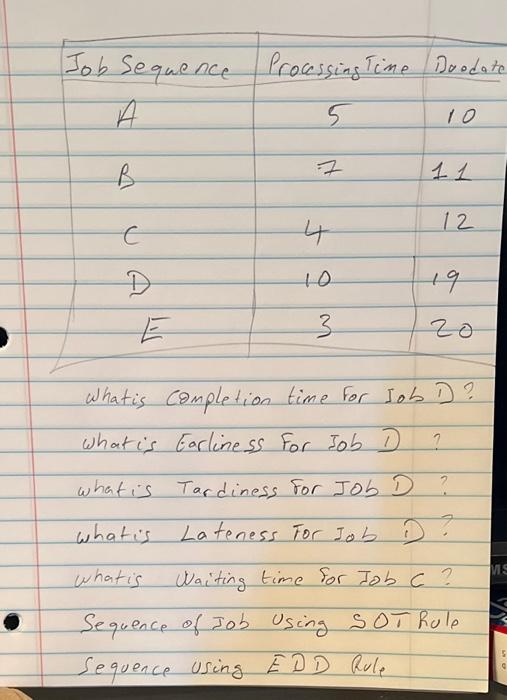 Job Sequence Processing Time Duedate
A 5 10
B 7 11
C 4 12
D 10 19
E 3 20
whatis Completion time for Job D?
whatis Earliness For Job D ?
whatis Tardiness for Job D ?
whatis Lateness For Job D ?
whatis Waiting time for Job C ?
Sequence of Job Using SOT Rule
Sequence using EDD Rule